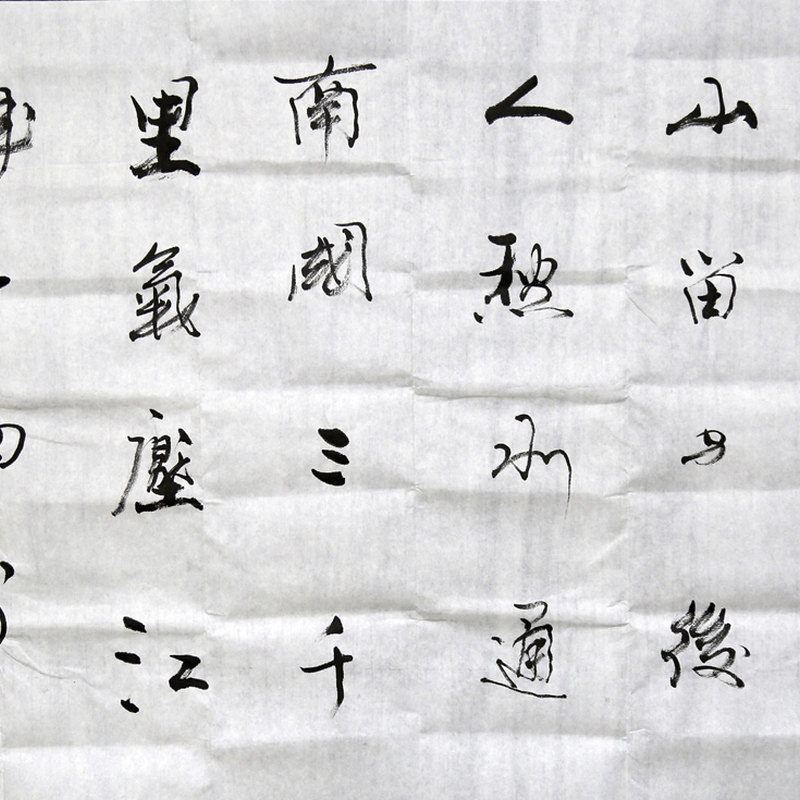 山留与後
人愁水通
南國三千
里氣壓江